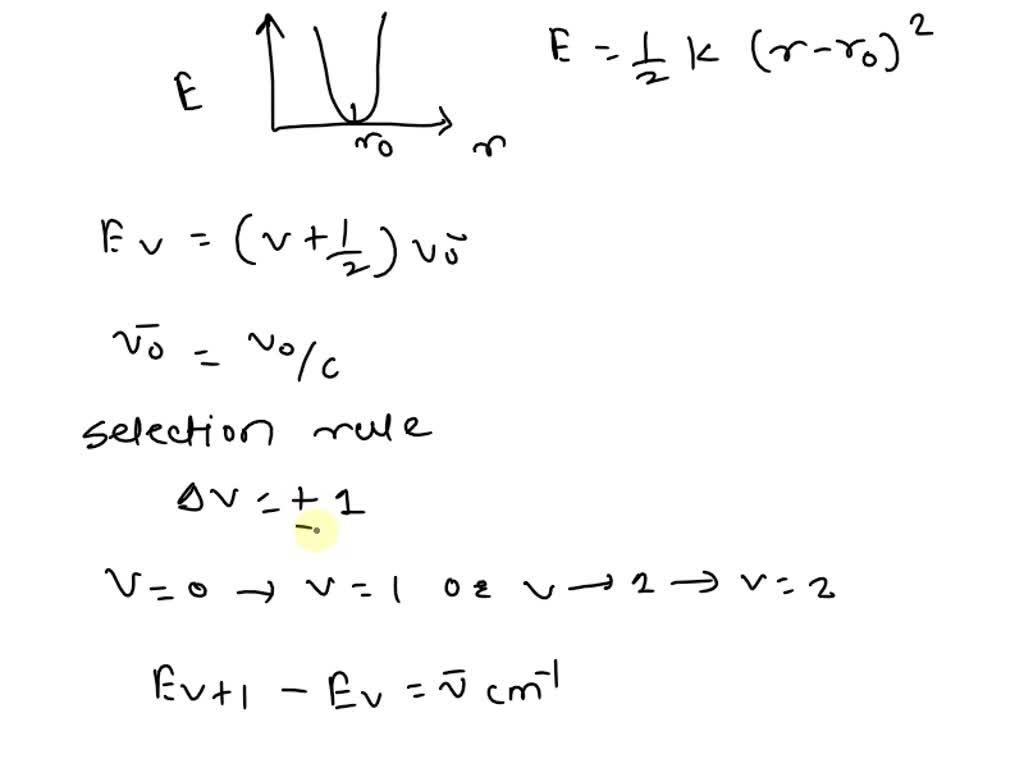 E = 1/2 k (r-r₀)²
E
r₀
r
Eᵥ = (v + 1/2) ν̄₀
ν̄₀ = ν₀/c
selection rule
Δv = ± 1
V = 0 → v = 1 or v → 2 → v = 2
Eᵥ₊₁ - Eᵥ = ν̄ cm⁻¹